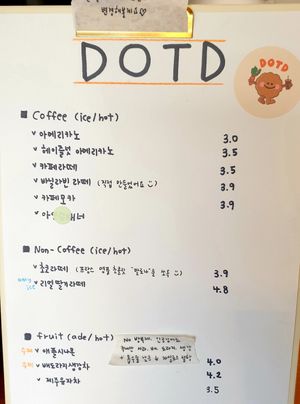 DOTD
DOTD
■ Coffee (ice/hot)
v 아메리카노 3.0
v 헤이즐넛 아메리카노 3.5
v 카페라떼 3.5
v 바닐라빈 라떼 (직접 만들었어요 :)) 3.9
v 카페모카 3.9
v 아
■ Non-Coffee (ice/hot)
v 초코라떼 3.9
only ice v 리얼딸기라떼 4.8
■ fruit (ade/hot)
수제 v 애플시나몬
수제 v 배도라지생강차 4.0
v 제주유자차 4.2
3.5